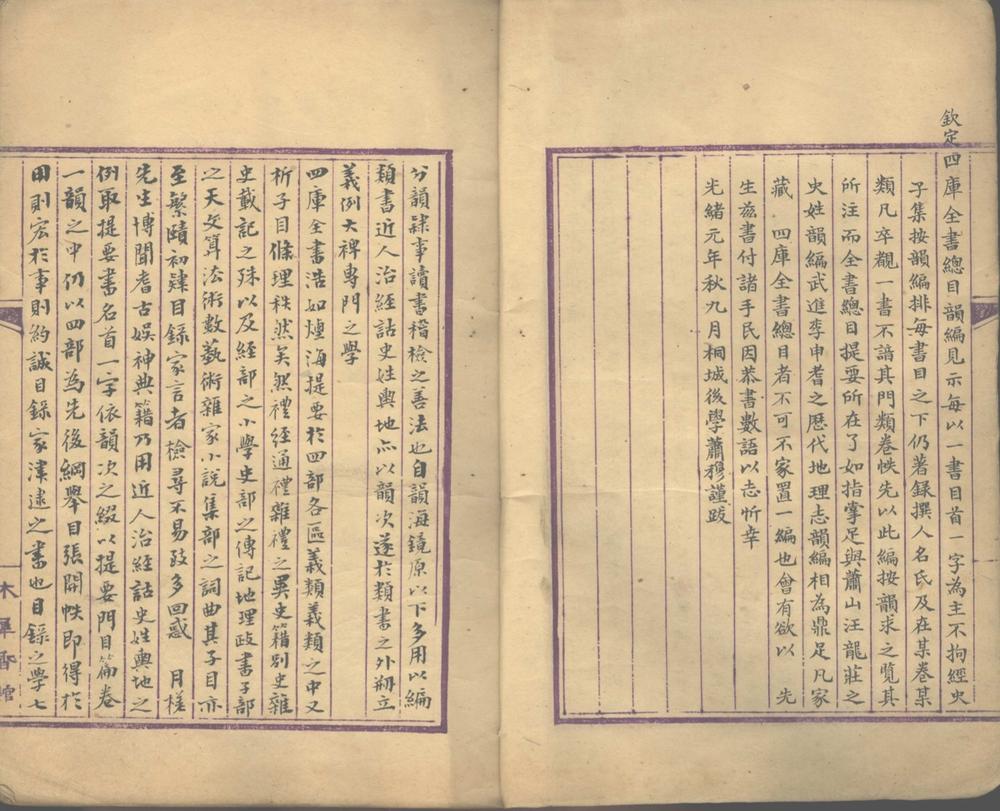 欽定四庫全書總目韻編見示每以一書目首一字為主不拘經史
子集按韻編排每書目之下仍著錄撰人名氏及在某卷某
類凡卒觀一書不諳其門類卷帙先以此編按韻求之覽其
所注而全書總目提要所在了如指掌足與蕭山汪龍莊之
史姓韻編武進李申耆之歷代地理志韻編相為鼎足凡家
藏　四庫全書總目者不可不家置一編也會有欲以　先
生茲書付諸手民因恭書數語以志忻幸
光緒元年秋九月桐城後學蕭穆謹跋
分韻隸事讀書稽檢之善法也自韻海鏡原以下多用以編
類書近人治經詁史姓輿地亦以韻次遂於類書之外剏立
義例大裨專門之學
四庫全書浩如煙海提要於四部各區義類義類之中又
析子目條理秩然矣然禮經通禮雜禮之異史籍別史雜
史載記之殊以及經部之小學史部之傳記地理政書子部
之天文算法術數藝術雜家小說集部之詞曲其子目亦
至繁賾初肄目錄家言者檢尋不易致多回惑　月槎
先生博聞耆古娛神典籍乃用近人治經詁史姓輿地之
例取提要書名首一字依韻次之綴以提要門目篇卷
一韻之中仍以四部為先後綱舉目張開帙即得於
用則宏於事則約誠目錄家津逮之書也目錄之學七
木犀香館